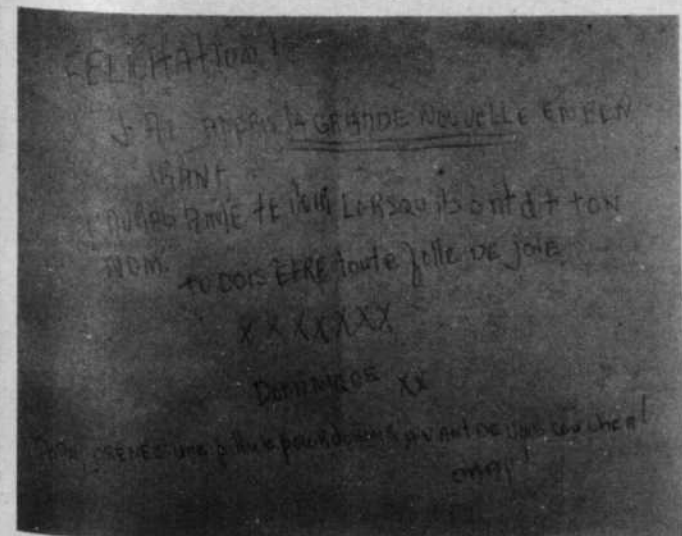 FELICITATION!
J'AI APPRIS LA GRANDE NOUVELLE EN REN
TRANT
J'AURAIS AIMÉ TE VOIR LORSQU'ils ont dit TON
NOM.
tu DOIS ÊTRE toute folle DE JOIE
XXXXXXX
DOMINIQUE XX
PRENEZ une pilule pour dormir AVANT DE vous coucher!